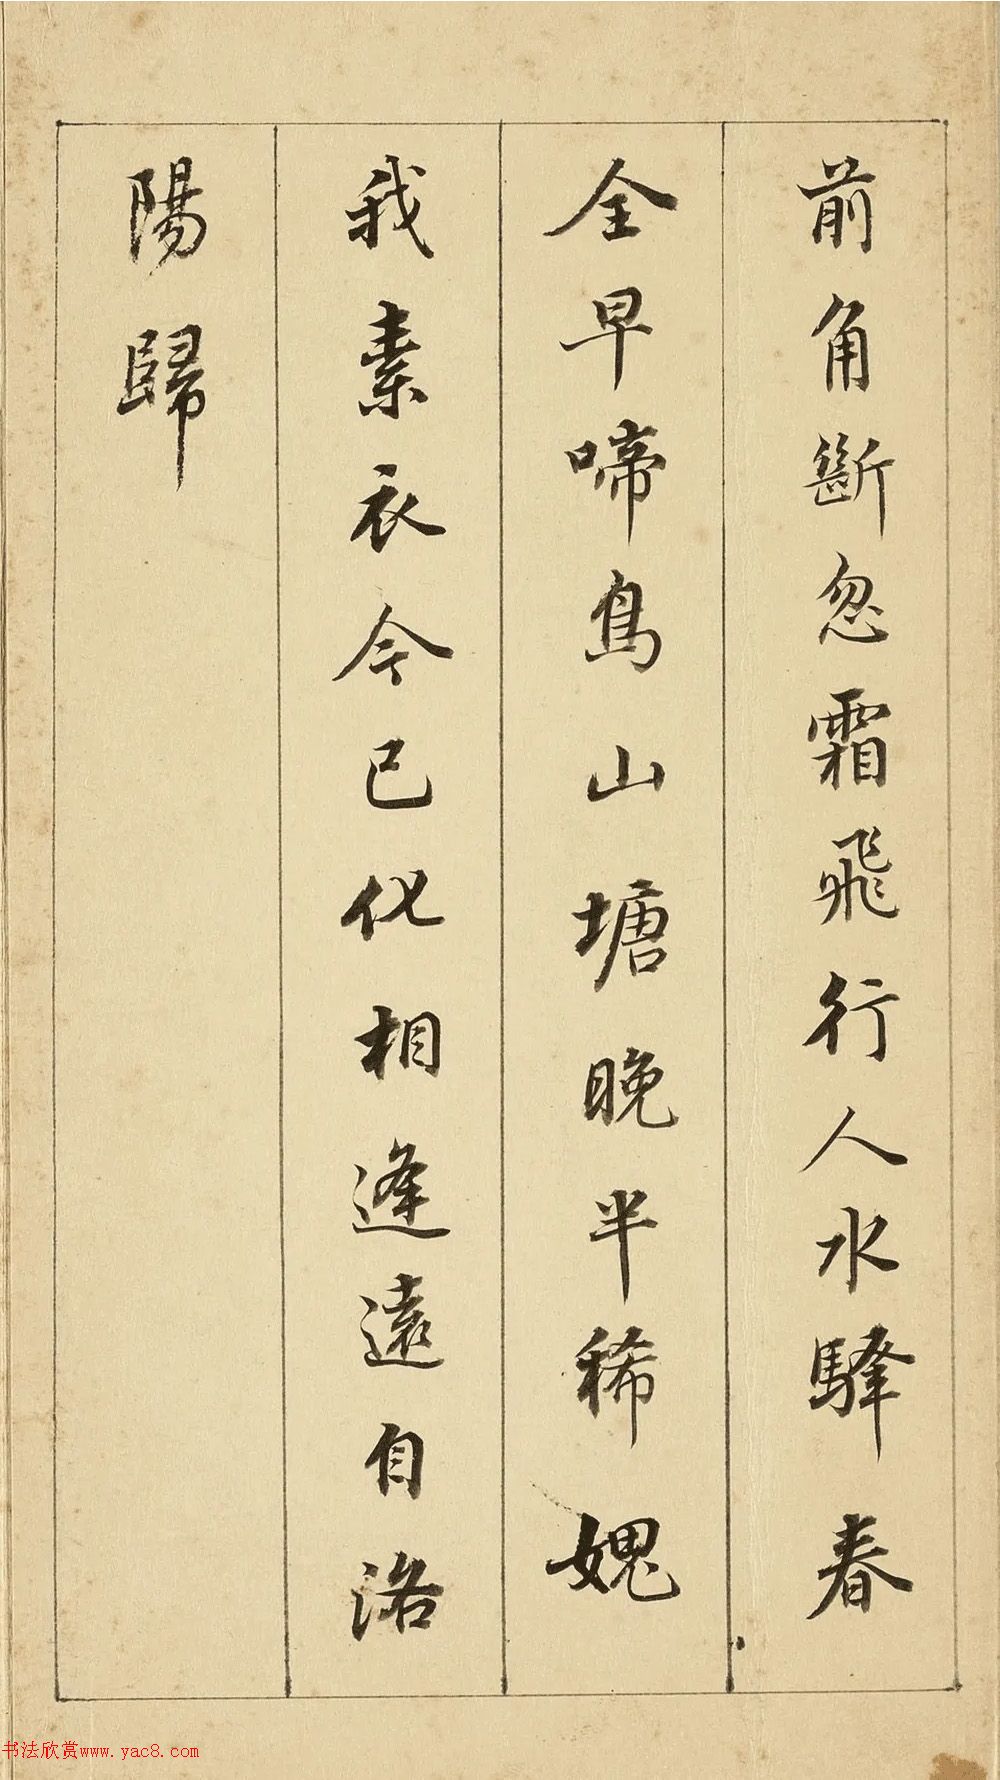 前角斷忽霜飛行人水驛春
全早啼鳥山塘晚半稀媿
我素衣今已化相逢遠自洛
陽歸
书法欣赏www.yac8.com